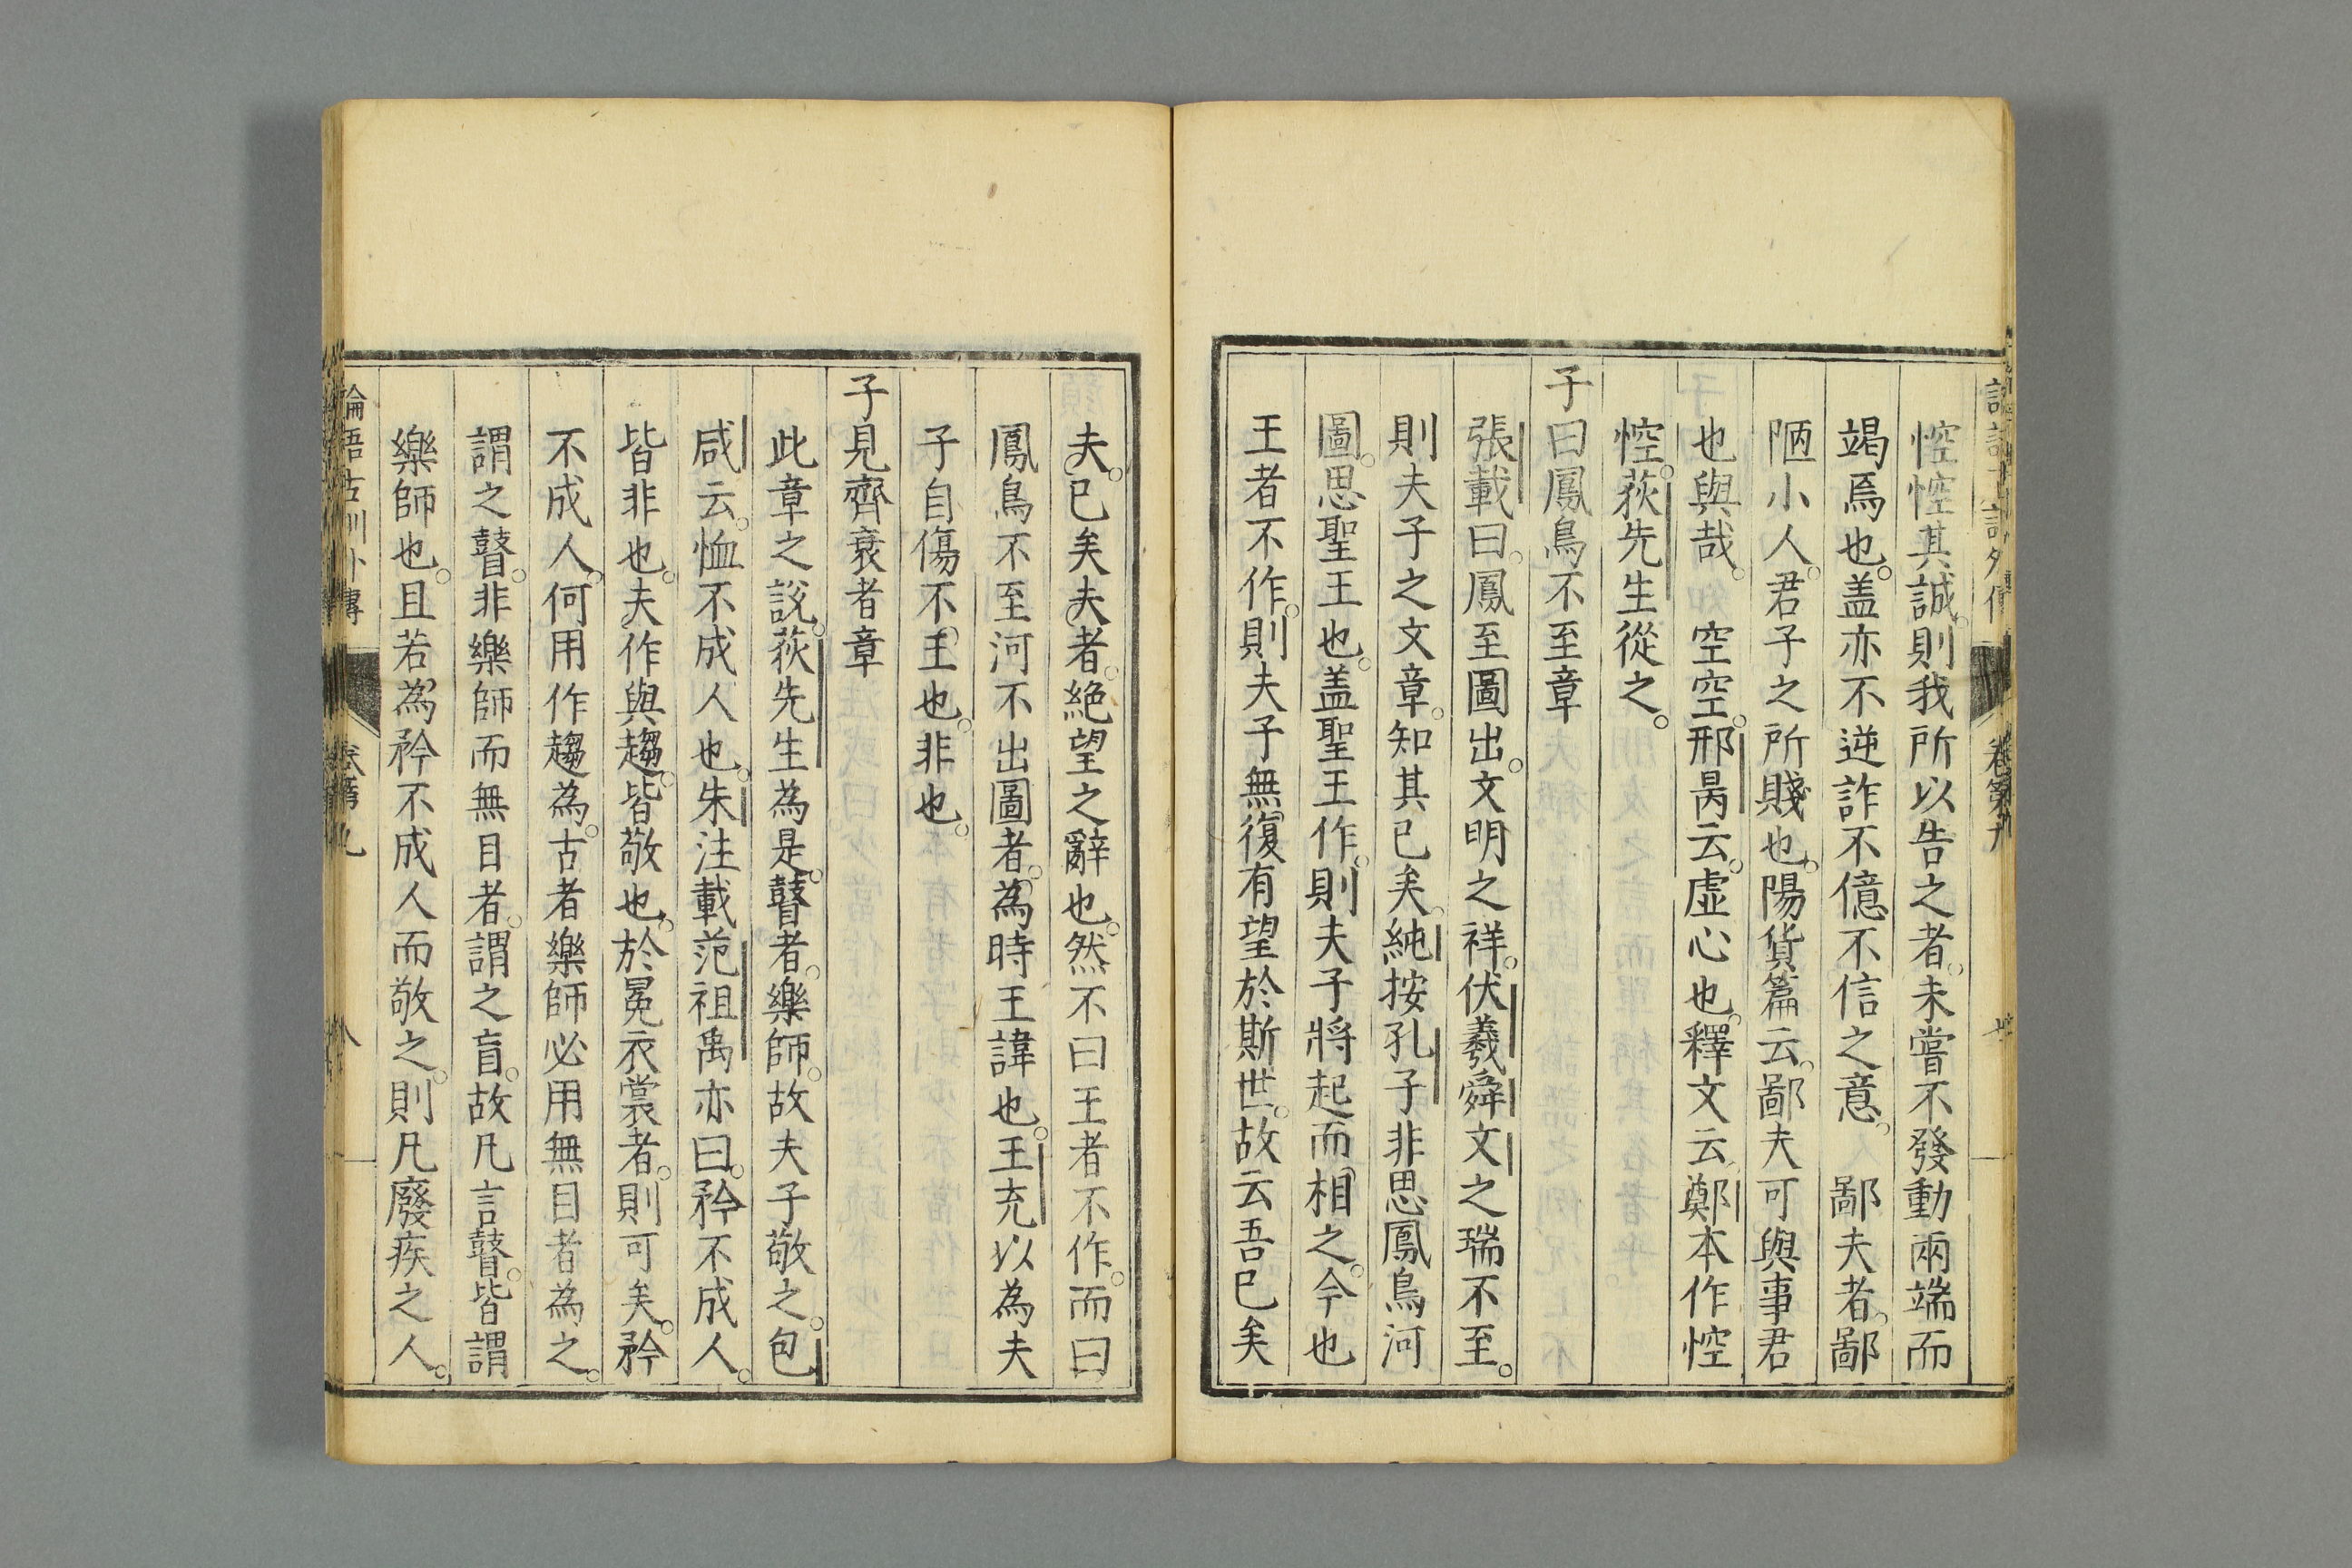 悾悾其誠。則我所以告之者。未嘗不發動兩端而
竭焉也。盖亦不逆詐不億不信之意。　鄙夫者。鄙
陋小人。君子之所賤也。陽貨篇云。鄙夫可與事君
也與哉。　空空。邢昺云。虛心也。釋文云。鄭本作悾
悾。荻先生從之。
子曰鳳鳥不至章
張載曰。鳳至圖出。文明之祥。伏羲舜文之瑞不至。
則夫子之文章。知其已矣。純按孔子非思鳳鳥河
圖。思聖王也。盖聖王作。則夫子將起而相之。今也
王者不作。則夫子無復有望於斯世。故云吾已矣
夫。已矣夫者。絕望之辭也。然不曰王者不作。而曰
鳳鳥不至河不出圖者。為時王諱也。王充以為夫
子自傷不王也。非也。
子見齊衰者章
此章之說。荻先生為是。瞽者。樂師。故夫子敬之。包
咸云。恤不成人也。朱注載范祖禹亦曰。矜不成人。
皆非也。夫作與趨。皆敬也。於冕衣裳者。則可矣。矜
不成人。何用作趨為。古者樂師必用無目者為之。
謂之瞽。非樂師而無目者。謂之盲。故凡言瞽。皆謂
樂師也。且若為矜不成人而敬之。則凡廢疾之人。
論語古訓外傳　卷第九　八